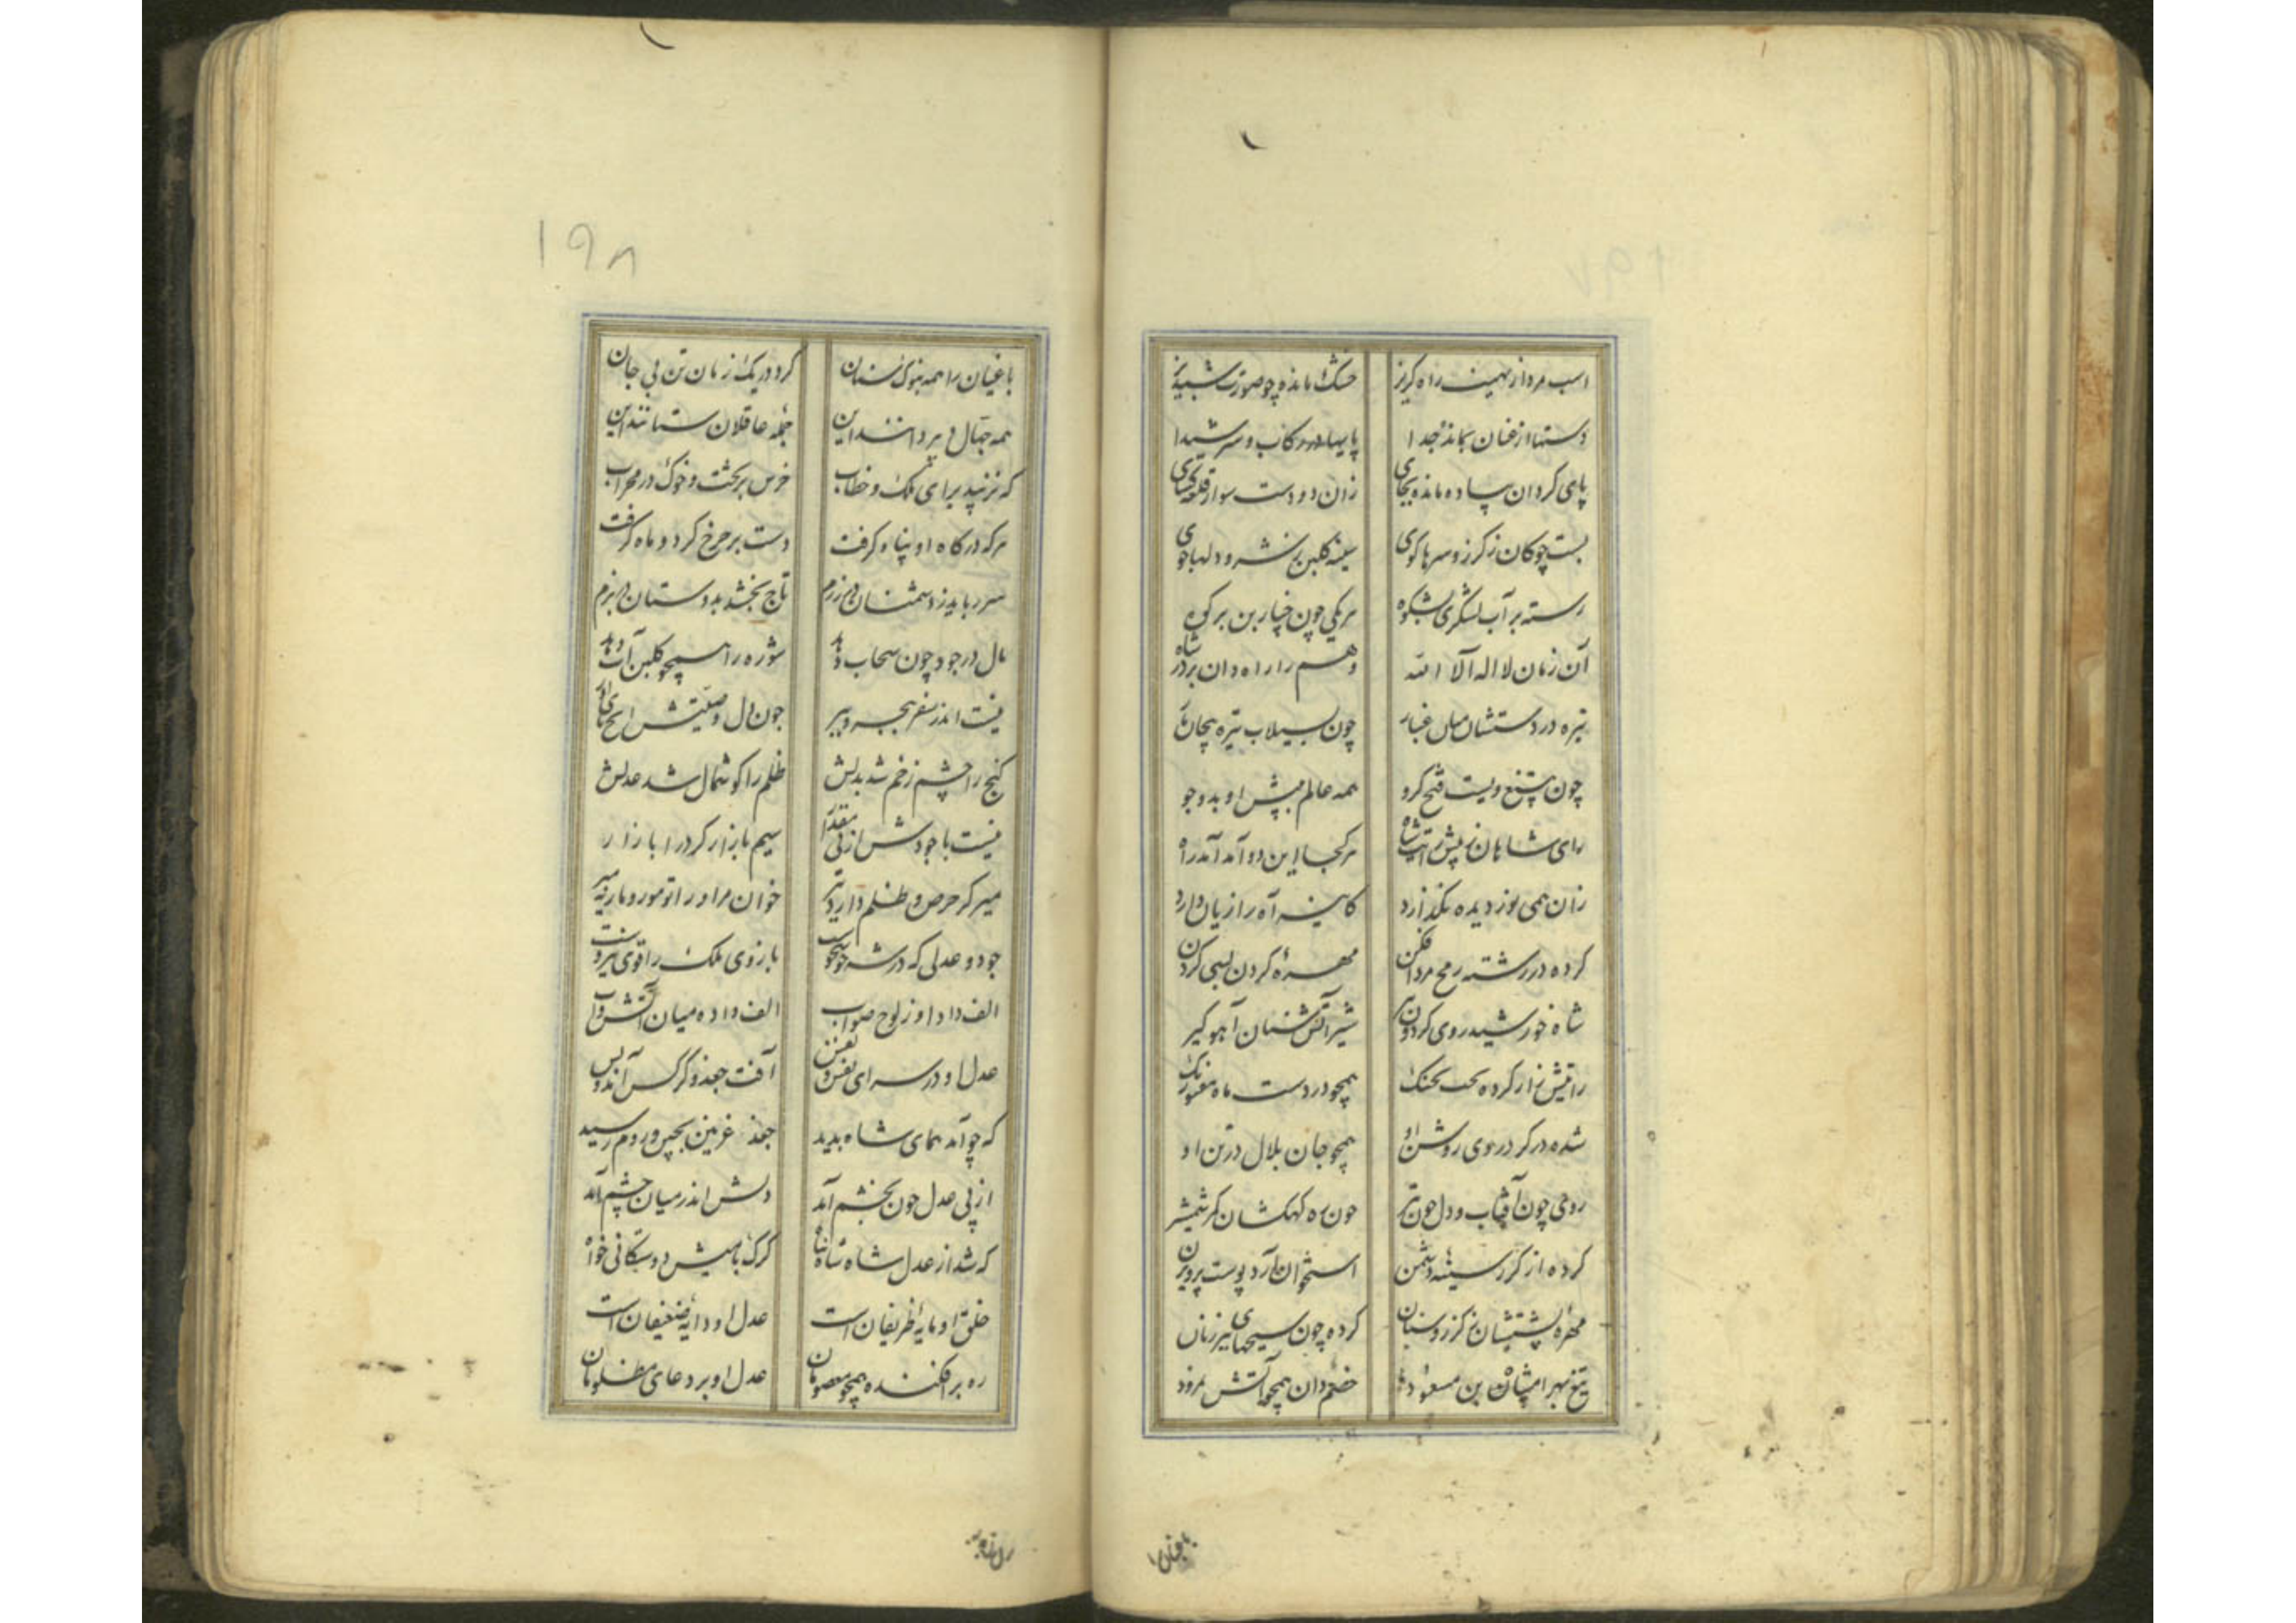 اسب مرد از نهیب راه کریز خشک مانده چو صورت شبدیز
دستها از عنان بمانده جدا پایها در رکاب و سر شیدا
پای کردان پیاده مانده بجای زان دو دست سوار قلعه کشای
پست چوکان ز کرز و سرها کوی سینه کلبن شر و دلها جوی
رسته بر آب لشکری بشکوه هریکی چون خیار بن بر کوه
آن زمان لا اله الا الله وهم را راه دان بر در شاه
نیزه در دستشان میان غبار چون بسیلاب تیره پیچان مار
چون بتیغ و بست فتح کرو همه عالم به پیش او بدو جو
رای شاهان ز پیش رایت شاه هرکجا این دو آمد آمد راه
زان همی نور دیده نکذارد کاینه آه را زیان دارد
کرده در رشته رمح مرد افکن مهرهٔ کردن بسی کردن
شاه خورشید روی کردون تیر شیر آتش سنان آهو کیر
رایتش زار کرده تحت بحنک همچو در دست ماه
شده در کرد روی روشن او همچو جان بلال در تن او
روی چون آفتاب و دل چون تیر چون ره کهکشان کمر شمشیر
کرده از کرز سینهٔ دشمن استخوان آرد پوست پرویزن
مهرهٔ پشتشان ز کرز و سنان کرده چون سبحهای پیر زنان
تیغ بهرامشاه بن مسعود خصم دان همچو آتش نمرود
باغیان را
۱۹۸
باغیان را همه بنوک سنان کرد در یک زمان تن بی جان
همه جهال می بدانند این جمله عاقلان ستانند این
که نزیبد برای ملک و خطاب خرس بر تخت و خوک در محراب
هرکه درکاه او پناه کرفت دست بر چرخ کرد و ماه کرفت
سر رباید ز دشمنان در رزم تاج بخشد بدوستان در بزم
مال در جود چون سحاب دهد شوره را همچو کلبن آب دهد
نیست اندر سفر ببحر و ببر چون دل و
کنج را چشم زخم شد بذلش ظلم را کوشمال شد عدلش
نیست با جودش از پی مقدار سیم با زار کرد را بازار
میر کز حرص و ظلم دارد تیر خوان مر او را تو مور و مار نه میر
جود و عدلی که در شه خوش خوست بازوی ملک را قوی نیروست
الف داد او ز لوح صواب الف داده میان آتش و آب
عدل او در سرای نعش آفت جغد و کرکس آمد و بس
که چو آمد همای شاه پدید جغد غزنین بچین و روم رسید
از پی عدل چون بخشم آمد دلش اندر میان چشم آمد
که شد از عدل شاه شاهنشاه کرک با میش دوستکانی خواه
خلق او مایهٔ ظریفان است عدل او دایهٔ ضعیفان است
ره بر افکنده همچو معصومان عدل او بر دعای مظلومان